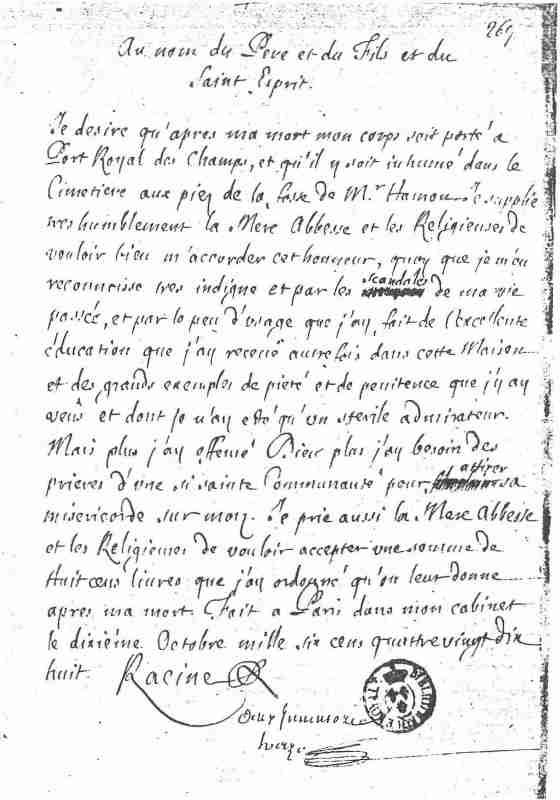 269
Au nom du Pere et du Fils et du
Saint Esprit.
Je desire qu'apres ma mort mon corps soit porté a
Port Royal des Champs, et qu'il y soit inhumé dans le
Cimetiere aux piez de la fosse de Mr Hamon. Je supplie
tres humblement la Mere Abbesse et les Religieuses de
vouloir bien m'accorder cet honneur, quoy que je m'en
reconnoisse tres indigne et par les scandales de ma vie
passée, et par le peu d'usage que j'ay fait de l'Excellente
éducation que j'ay receuë autrefois dans cette Maison
et des grands exemples de pieté et de penitence que j'y ay
veûs et dont je n'ay esté qu'un sterile admirateur.
Mais plus j'ay offensé Dieu plus j'ay besoin des
prieres d'une si sainte Communauté pour attirer sa
misericorde sur moy. Je prie aussi la Mere Abbesse
et les Religieuses de vouloir accepter une somme de
huit cens livres que j'ay ordonné qu'on leur donne
apres ma mort. Fait a Paris dans mon cabinet
le dixiéme Octobre mille six cens quattre vingt dix
huit. Racine